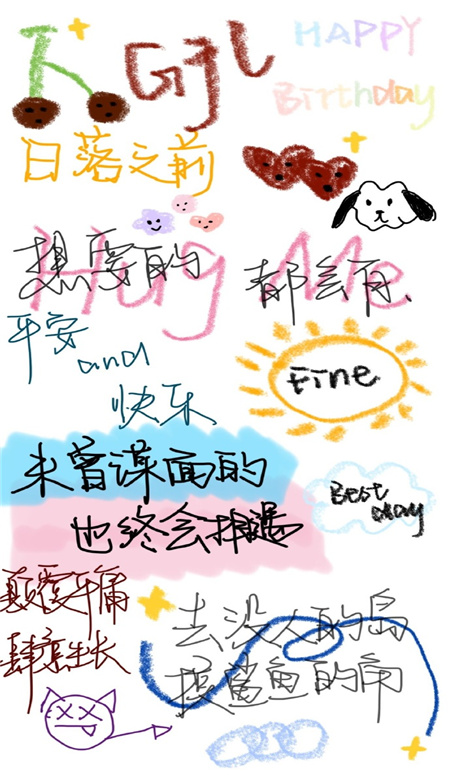 Girl
HAPPY
Birthday
日落之前
Hug Me
想要的 都会有、
平安
and
快乐
Fine
未曾谋面的
也终会相遇
Best
day
颠覆平庸
肆意生长
去没人的岛
摸鲨鱼的角